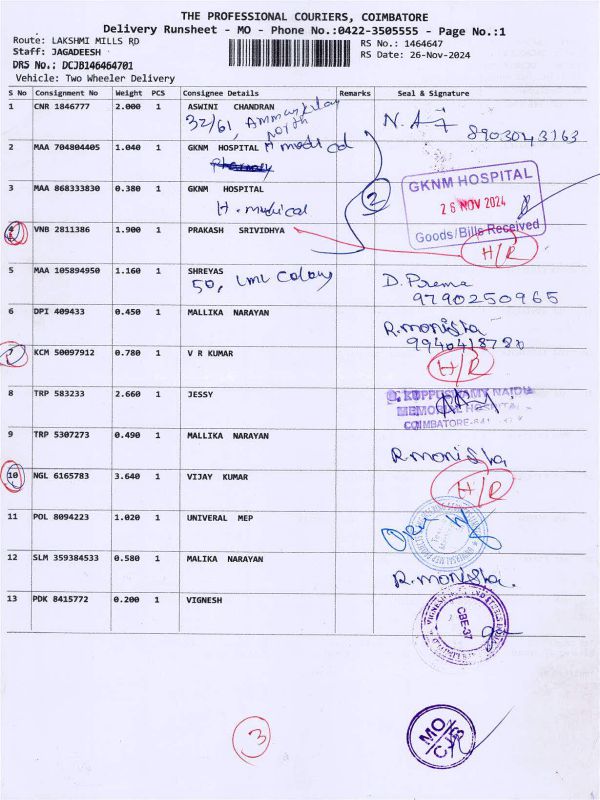 THE PROFESSIONAL COURIERS, COIMBATORE
Delivery Runsheet - MO - Phone No.:0422-3505555 - Page No.:1
Route: LAKSHMI MILLS RD
Staff: JAGADEESH
DRS No.: DCJB146464701
Vehicle: Two Wheeler Delivery
RS No.: 1464647
RS Date: 26-Nov-2024
S No Consignment No Weight PCS Consignee Details Remarks Seal & Signature
1 CNR 1846777 2.000 1 ASWINI CHANDRAN
32/61,
North
8903043163
2 MAA 704804405 1.040 1 GKNM HOSPITAL H medical
Pharmacy
3 MAA 868333830 0.380 1 GKNM HOSPITAL
H. medical
2
GKNM HOSPITAL
26 NOV 2024
Goods/Bills Received
4 VNB 2811386 1.900 1 PRAKASH SRIVIDHYA
H/R
5 MAA 105894950 1.160 1 SHREYAS
50, LML Colony
D. Prema
9790250965
6 DPI 409433 0.450 1 MALLIKA NARAYAN
R.monisha
9940418780
7 KCM 50097912 0.780 1 V R KUMAR
H/R
8 TRP 583233 2.660 1 JESSY
G. KUPPUSWAMY NAIDU
MEMORIAL HOSPITAL
COIMBATORE-641
9 TRP 5307273 0.490 1 MALLIKA NARAYAN
R.monisha
10 NGL 6165783 3.640 1 VIJAY KUMAR
H/R
11 POL 8094223 1.020 1 UNIVERAL MEP
12 SLM 359384533 0.580 1 MALIKA NARAYAN
R.monisha.
13 PDK 8415772 0.200 1 VIGNESH
VIGNESH
CBE-37
3
MO
CJB